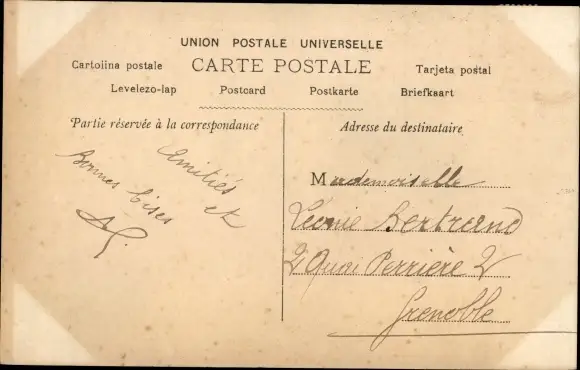 UNION POSTALE UNIVERSELLE
Cartolina postale CARTE POSTALE Tarjeta postal
Levelezo-lap Postcard Postkarte Briefkaart
Partie réservée à la correspondance
Amitiés
et
Bonnes bises
Adresse du destinataire
Mademoiselle
Léonie Bertrand
2 Quai Perrière 2
Grenoble